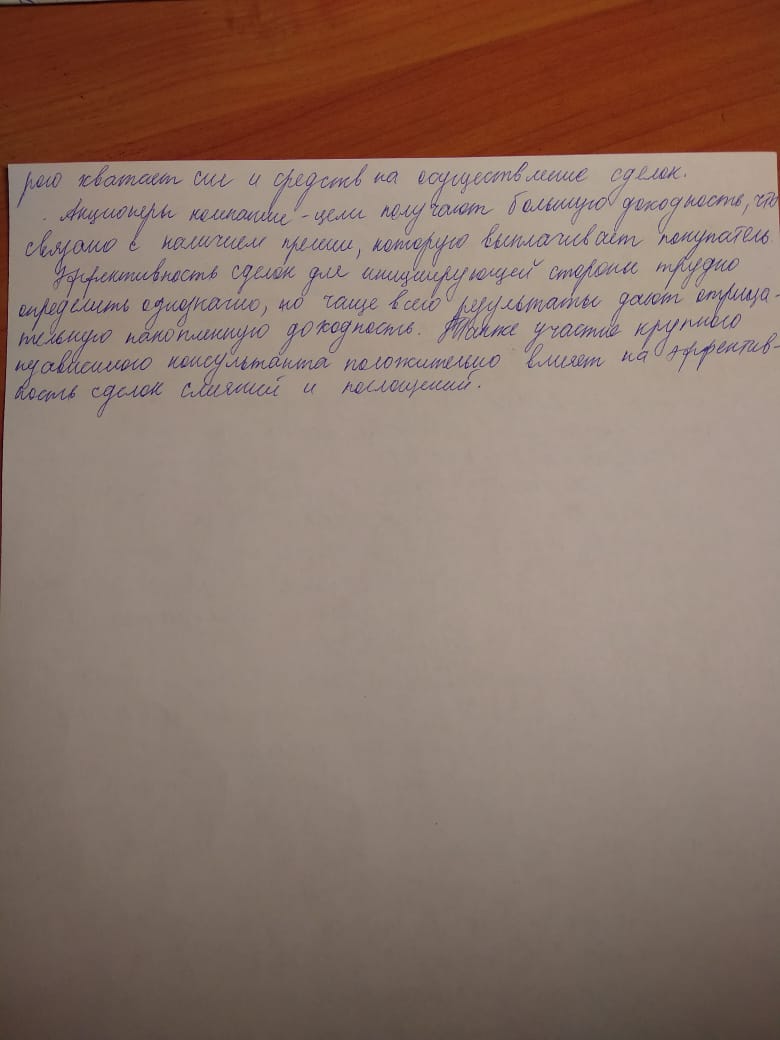 рого хватает сил и средств на осуществление сделок.
Акционеры компании-цели получают большую доходность, что
связано с наличием премии, которую выплачивает покупатель.
Эффективность сделок для инициирующей стороны трудно
определить однозначно, но чаще всего результаты дают отрица-
тельную накопленную доходность. Также участие крупного
независимого консультанта положительно влияет на эффектив-
ность сделок слияний и поглощений.